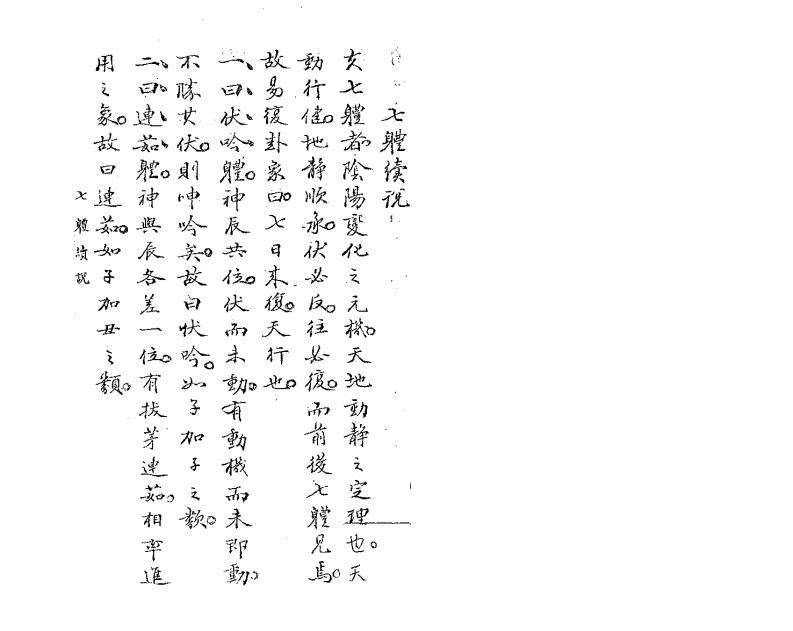 七體續說
夫七體者。陰陽變化之元機。天地動靜之定理也。天
動行健。地靜順承。伏必反。往必復。而前後七體見焉。
故易復卦彖曰。七日來復。天行也。
一、曰、伏、吟、體。神辰共位。伏而未動。有動機而未即動。
不勝其伏。則呻吟矣。故曰伏吟。如子加子之類。
二、曰、連、茹、體。神與辰各差一位。有拔茅連茹。相率進
用之象。故曰連茹。如子加丑之類。
七體續說